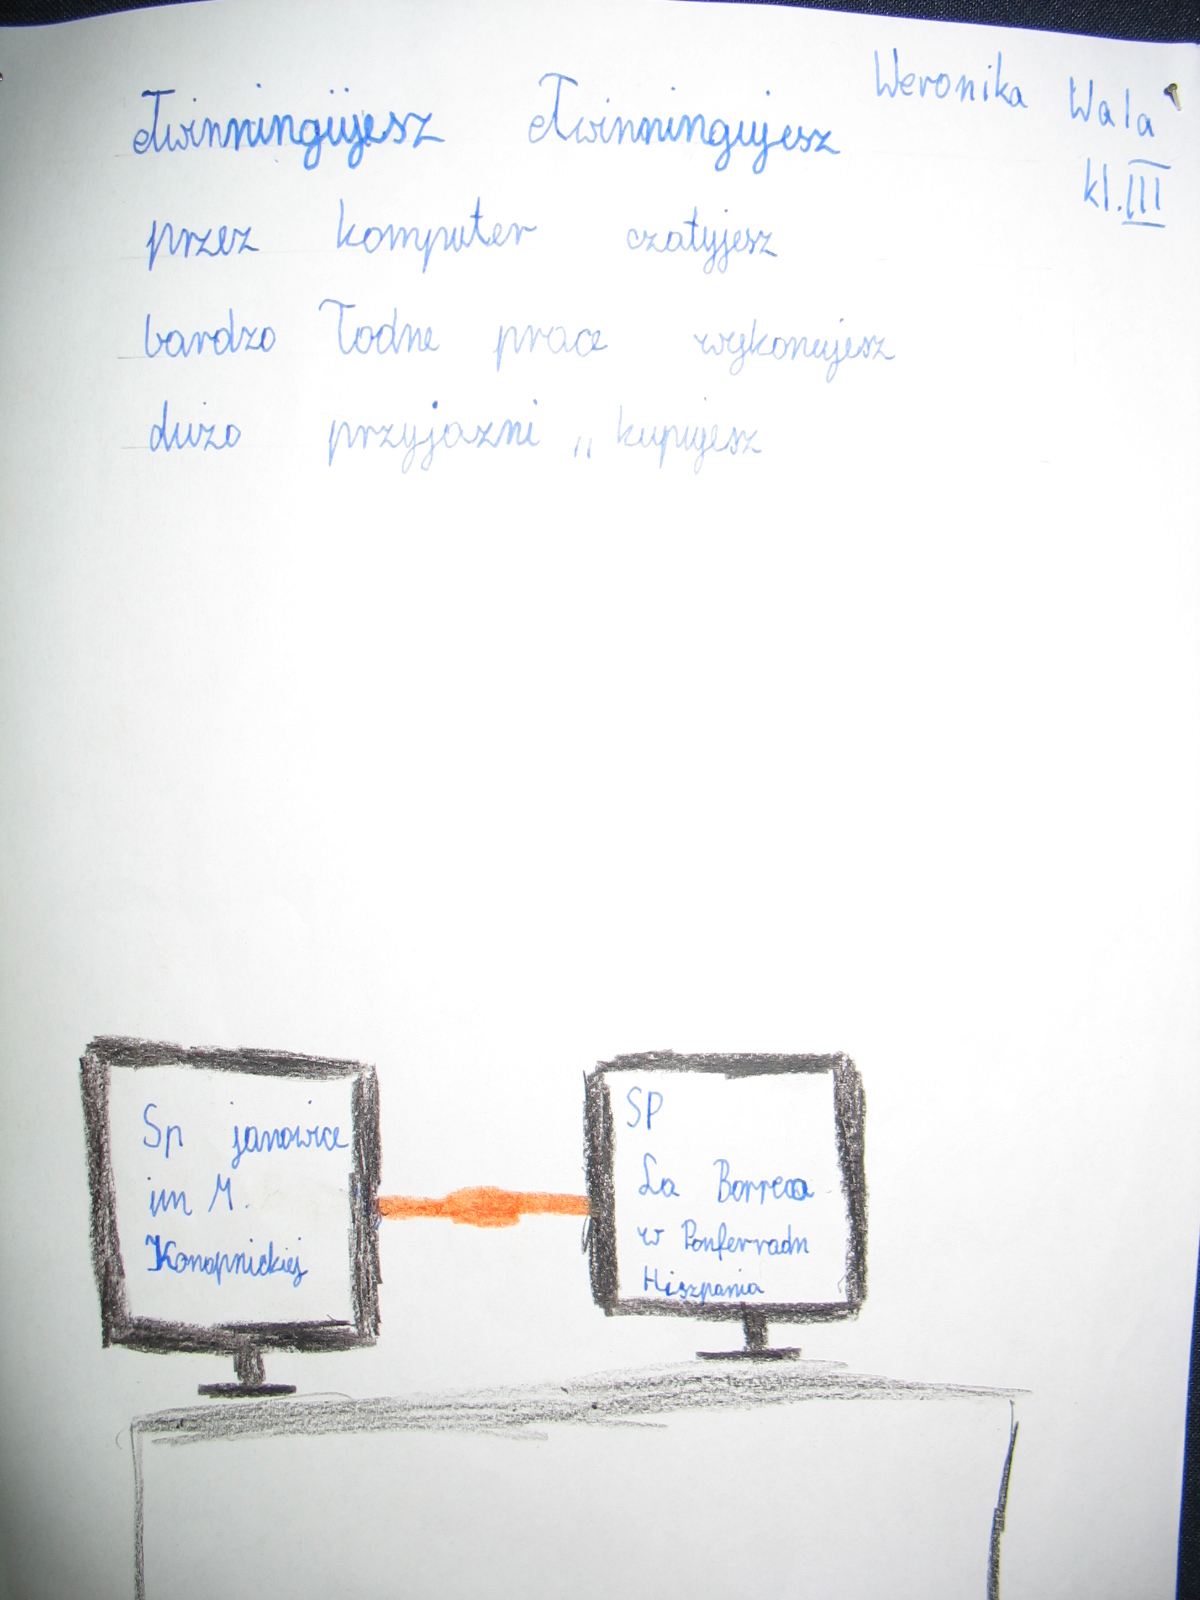 Weronika Wala
kl. III
eTwinningujesz eTwinningujesz
przez komputer czatujesz
bardzo ładne prace wykonujesz
dużo przyjazni „kupujesz
Sp janowice
im M.
Konopnickiej
SP
La Borreca
w Ponferradn
Hiszpania